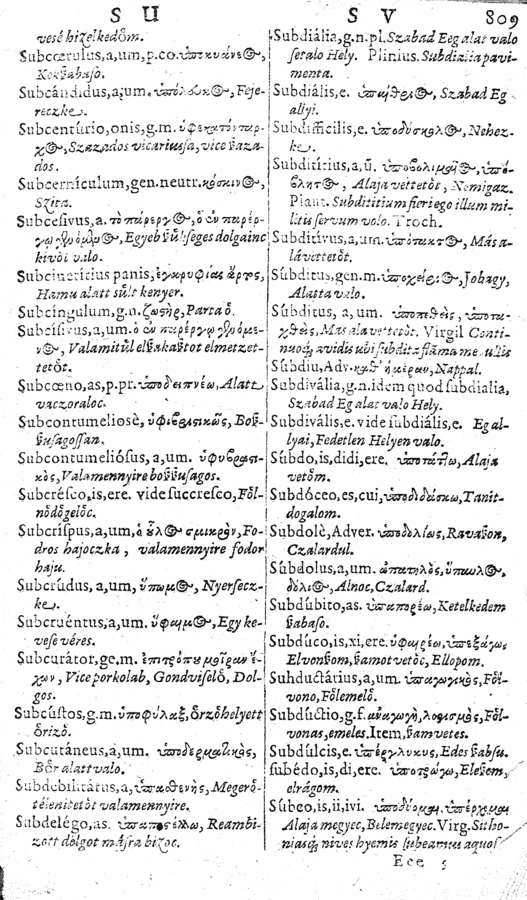 S U
S V
809
vesé hizelkedôm.
Subcœrulus, a, um, p. co. ὑποκυάνεος,
Kekſabaſo.
Subcándidus, a, um. ὑπόλευκος, Feje-
reczke.
Subcenturio, onis, g. m. ὑφεκατόνταρ-
χος, Szazados vicariuſa, vice kaza-
dos.
Subcerniculum, gen. neutr. κόσκινος,
Szita.
Subcesivus, a. τὸ πάρεργος, ὁ ἐν παρέρ-
γῳ γινόμενος, Egyeb ſuſeges dolgainc
kivôi valo.
Subcineritius panis, ἐγκρυφίας ἄρτος,
Hamu alatt sült kenyer.
Subcíngulum, g. n. ζωστὴρ, Parta ô.
Subcisivus, a, um. ὁ ἐν παρέργῳ γινόμε-
νος, Valamitül elſzakaſztot elmetzet-
tetôt.
Subcœno, as, p. pr. ὑποδειπνέω, Alatt
vaczoraloc.
Subcontumeliosè, ὑφυβριστικῶς, Boſ-
ſuſagoſſan.
Subcontumeliósus, a, um. ὑφυβριστι-
κὸς, Valamennyire boſſuſagos.
Subcréſco, is, ere. vide ſuccreſco, Fôl-
nôdôgelôc.
Subcríſpus, a, um, ὁ οὖλος σμικρὸν, Fo-
dros hajoczka, valamennyire fodor
haju.
Subcrúdus, a, um, ὕπωμος, Nyersecz-
ke.
Subcruéntus, a, um. ὕφαιμος, Egy ke-
veſe véres.
Subcurátor, ge. m. ἐπιτρόπου μοῖραν ἔ-
χων, Vice porkolab, Gondviſelô, Dol-
gos.
Subcúſtos, g. m. ὑποφύλαξ, ôrzô helyett
ôrizô.
Subcutáneus, a, um. ὑποδερματικὸς,
Bôr alatt valo.
Subdebilitátus, a, ὑπασθενὴς, Megerô-
télenitetôt valamennyire.
Subdelégo, as. ὑπαποστέλλω, Reambi-
zott dolgot máſra bizoc.
Subdiália, g. n. pl. Szabad Eeg alat valo
ſetalo Hely. Plinius. Subdialia pavi-
menta.
Subdiális, e. ὑπαίθριος, Szabad Eg
allyi.
Subdifficilis, e. ὑποδύσκολος, Nehez-
ke.
Subditítius, a, ũ. ὑποβολιμαῖος, ὑπό-
βλητος, Alaja vettetôt, Nemigaz.
Plaut. Subdititium fieri ego illum mi-
litis ſervum volo. Troch.
Subditívus, a, um. ὑπότακτος, Más a-
lá vettetôt.
Súbditus, gen. m. ὑποχείριος, Jobagy,
Alatta valo.
Súbditus, a, um. ὑποτεθεὶς, ὑποτα-
χθεὶς, Mas ala vetetôt. Virgil Conti-
nuoq́; avidis ubi ſubdita flāma medullis
Súbdiu, Adv. καθ᾽ ἡμέραν, Nappal.
Subdivália, g. n. idem quod ſubdialia,
Szabad Eg alat valo Hely.
Subdivális, e. vide ſubdiális, e. Eg al-
lyai, Fedetlen Helyen valo.
Súbdo, is, didi, ere. ὑποτάττω, Alaja
vetôm.
Subdóceo, es, cui, ὑποδιδάσκω, Tanit-
dogalom.
Subdolè, Adver. ὑποδολίως, Ravaſzon,
Czalardul.
Súbdolus, a, um. ἀπατηλὸς, ὕπουλος,
δόλιος, Alnoc, Czalard.
Subdúbito, as. ὑπαπορέω, Ketelkedem
ſabaſo.
Subdúco, is, xi, ere. ὑφαιρέω, ὑπεξάγω,
Elvonſzom, ſzamot vetôc, Ellopom.
Suhductárius, a, um. ὑπαγωγικὸς, Fôl-
vono, Fôlemelô.
Subdúctio, g. f. ἀναγωγὴ, λογισμὸς, Fôl-
vonas, emeles. Item, ſzamvetes.
Subdúlcis, e. ὑπόγλυκυς, Edes ſzabſu.
ſubédo, is, di, ere. ὑποτρώγω, Eleſzem,
elrágom.
Súbeo, is, ii, ivi. ὑποδύομαι, ὑπέρχομαι
Alaja megyec, Belemegyec. Virg. Sitho-
niasq́; nives hyemis ſubeamus aquoſ
Eee 5